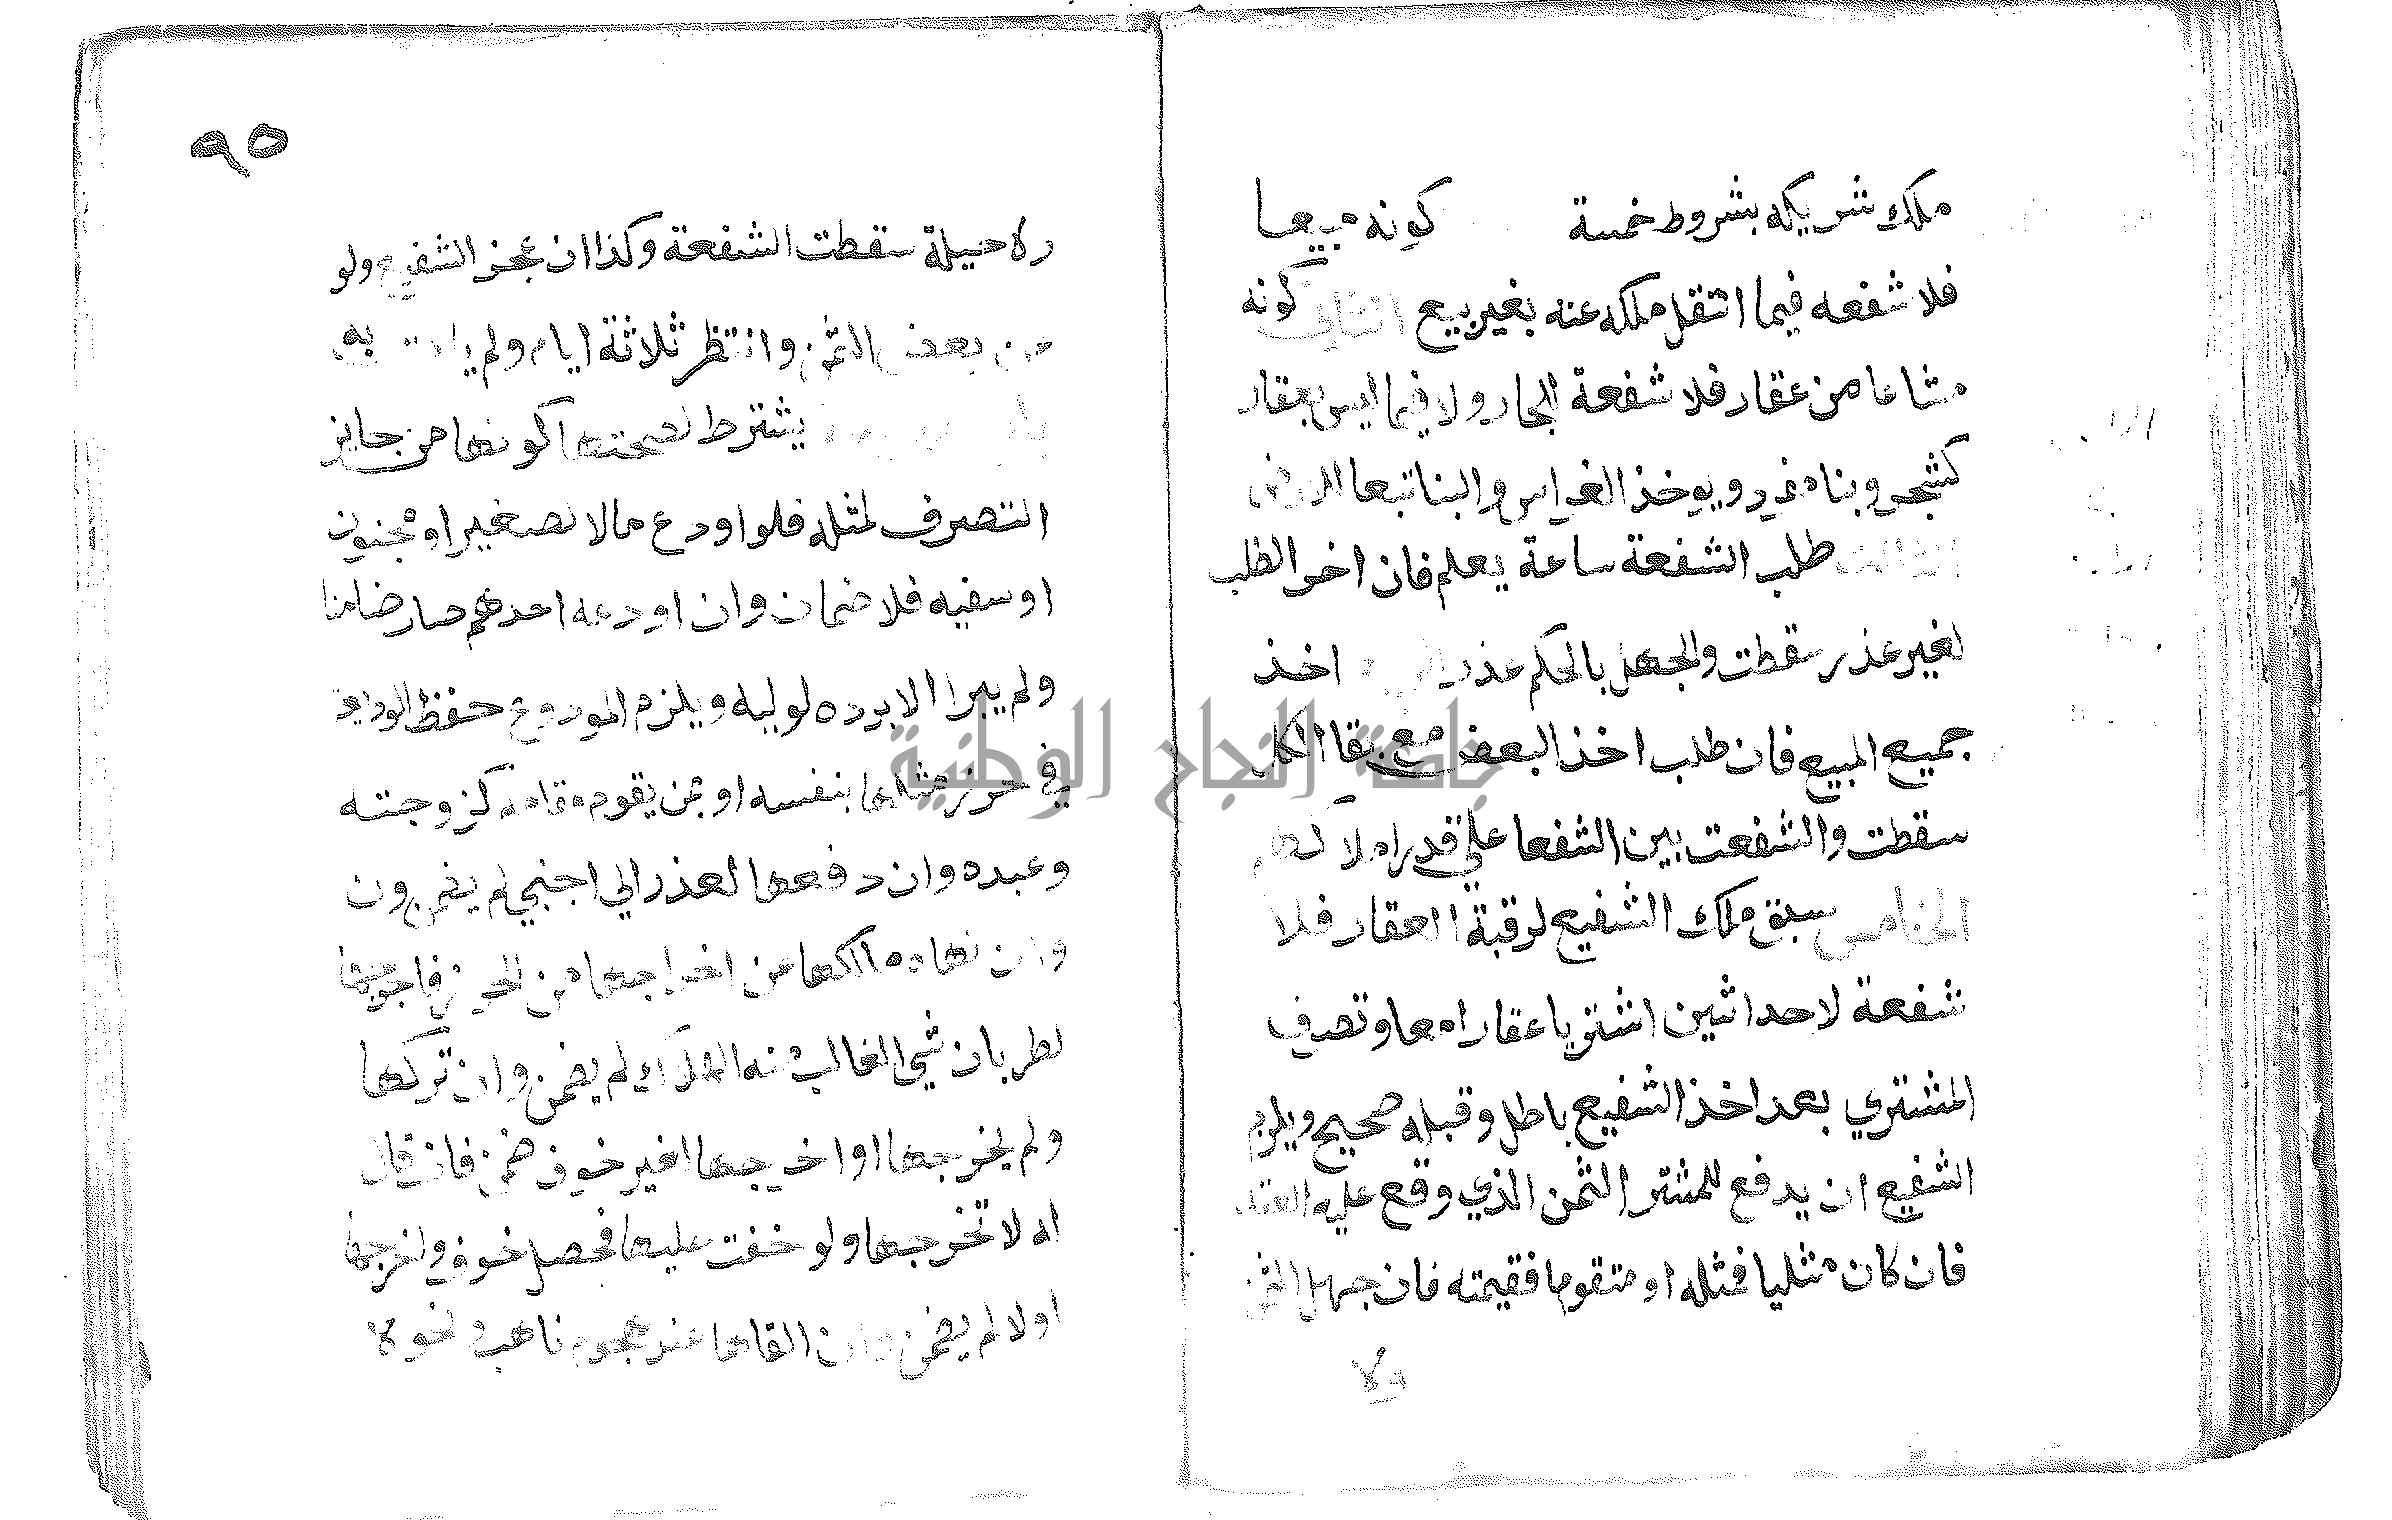 ملك شريكه بشروط خمسة كونه مبيعا
فلا شفعه فيما انتقل ملكه عنه بغير بيع الثاني كونه
مشاعا من عقار فلا شفعة للجار ولا فيما ليس بعقار
كشجر وبناء مفرد ويوخذ الغراس والبنا تبعا للارض
الثالث طلب الشفعة ساعة يعلم فان اخر الطلب
لغير عذر سقطت والجهل بالحكم عذر اخذ
جميع المبيع فان طلب اخذ البعض مع بقا الكل
سقطت والشفعت بين الشفعا على قدر املاكهم
الخامس سبق ملك الشفيع لرقبة العقار فلا
شفعة لاحد اثنين اشتريا عقارا معا وتصرف
المشتري بعد اخذ الشفيع باطل وقبله صحيح ويلزم
الشفيع ان يدفع للمشتر الثمن الذي وقع عليه العقد
فان كان مثليا فمثله او متقوما فقيمته فان جهل الثمن
ولا
٩٥
ره حيلة سقطت الشفعة وكذا ان عجز الشفيع ولو
عن بعض الثمن وانتظر ثلاثة ايام ولم يات به
يشترط لصحتها كونها من جايز
التصرف لمثله فلو اودع مالا لصغير او مجنون
او سفيه فلا ضمان وان اودعه احدهم صار ضامنا
ولم يبرا الا برده لوليه ويلزم المودع حفظ الوديعة
في حرز مثلها بنفسه او بمن يقوم مقامه كزوجته
وعبده وان دفعها لعذر الي اجنبي لم يضمن
وان نهاه مالكها عن اخراجها من الحرز فاخرجها
لطريان شي الغالب منه الهلاك لم يضمن وان تركها
ولم يخرجها او اخرجها لغير خوف ضمن فان قال
له لا تخرجها ولو خفت عليها فحصل خوف واخرجها
اولا لم يضمن وان القاها عند هجوم ناهب ونحوه
جامعة النجاح الوطنية